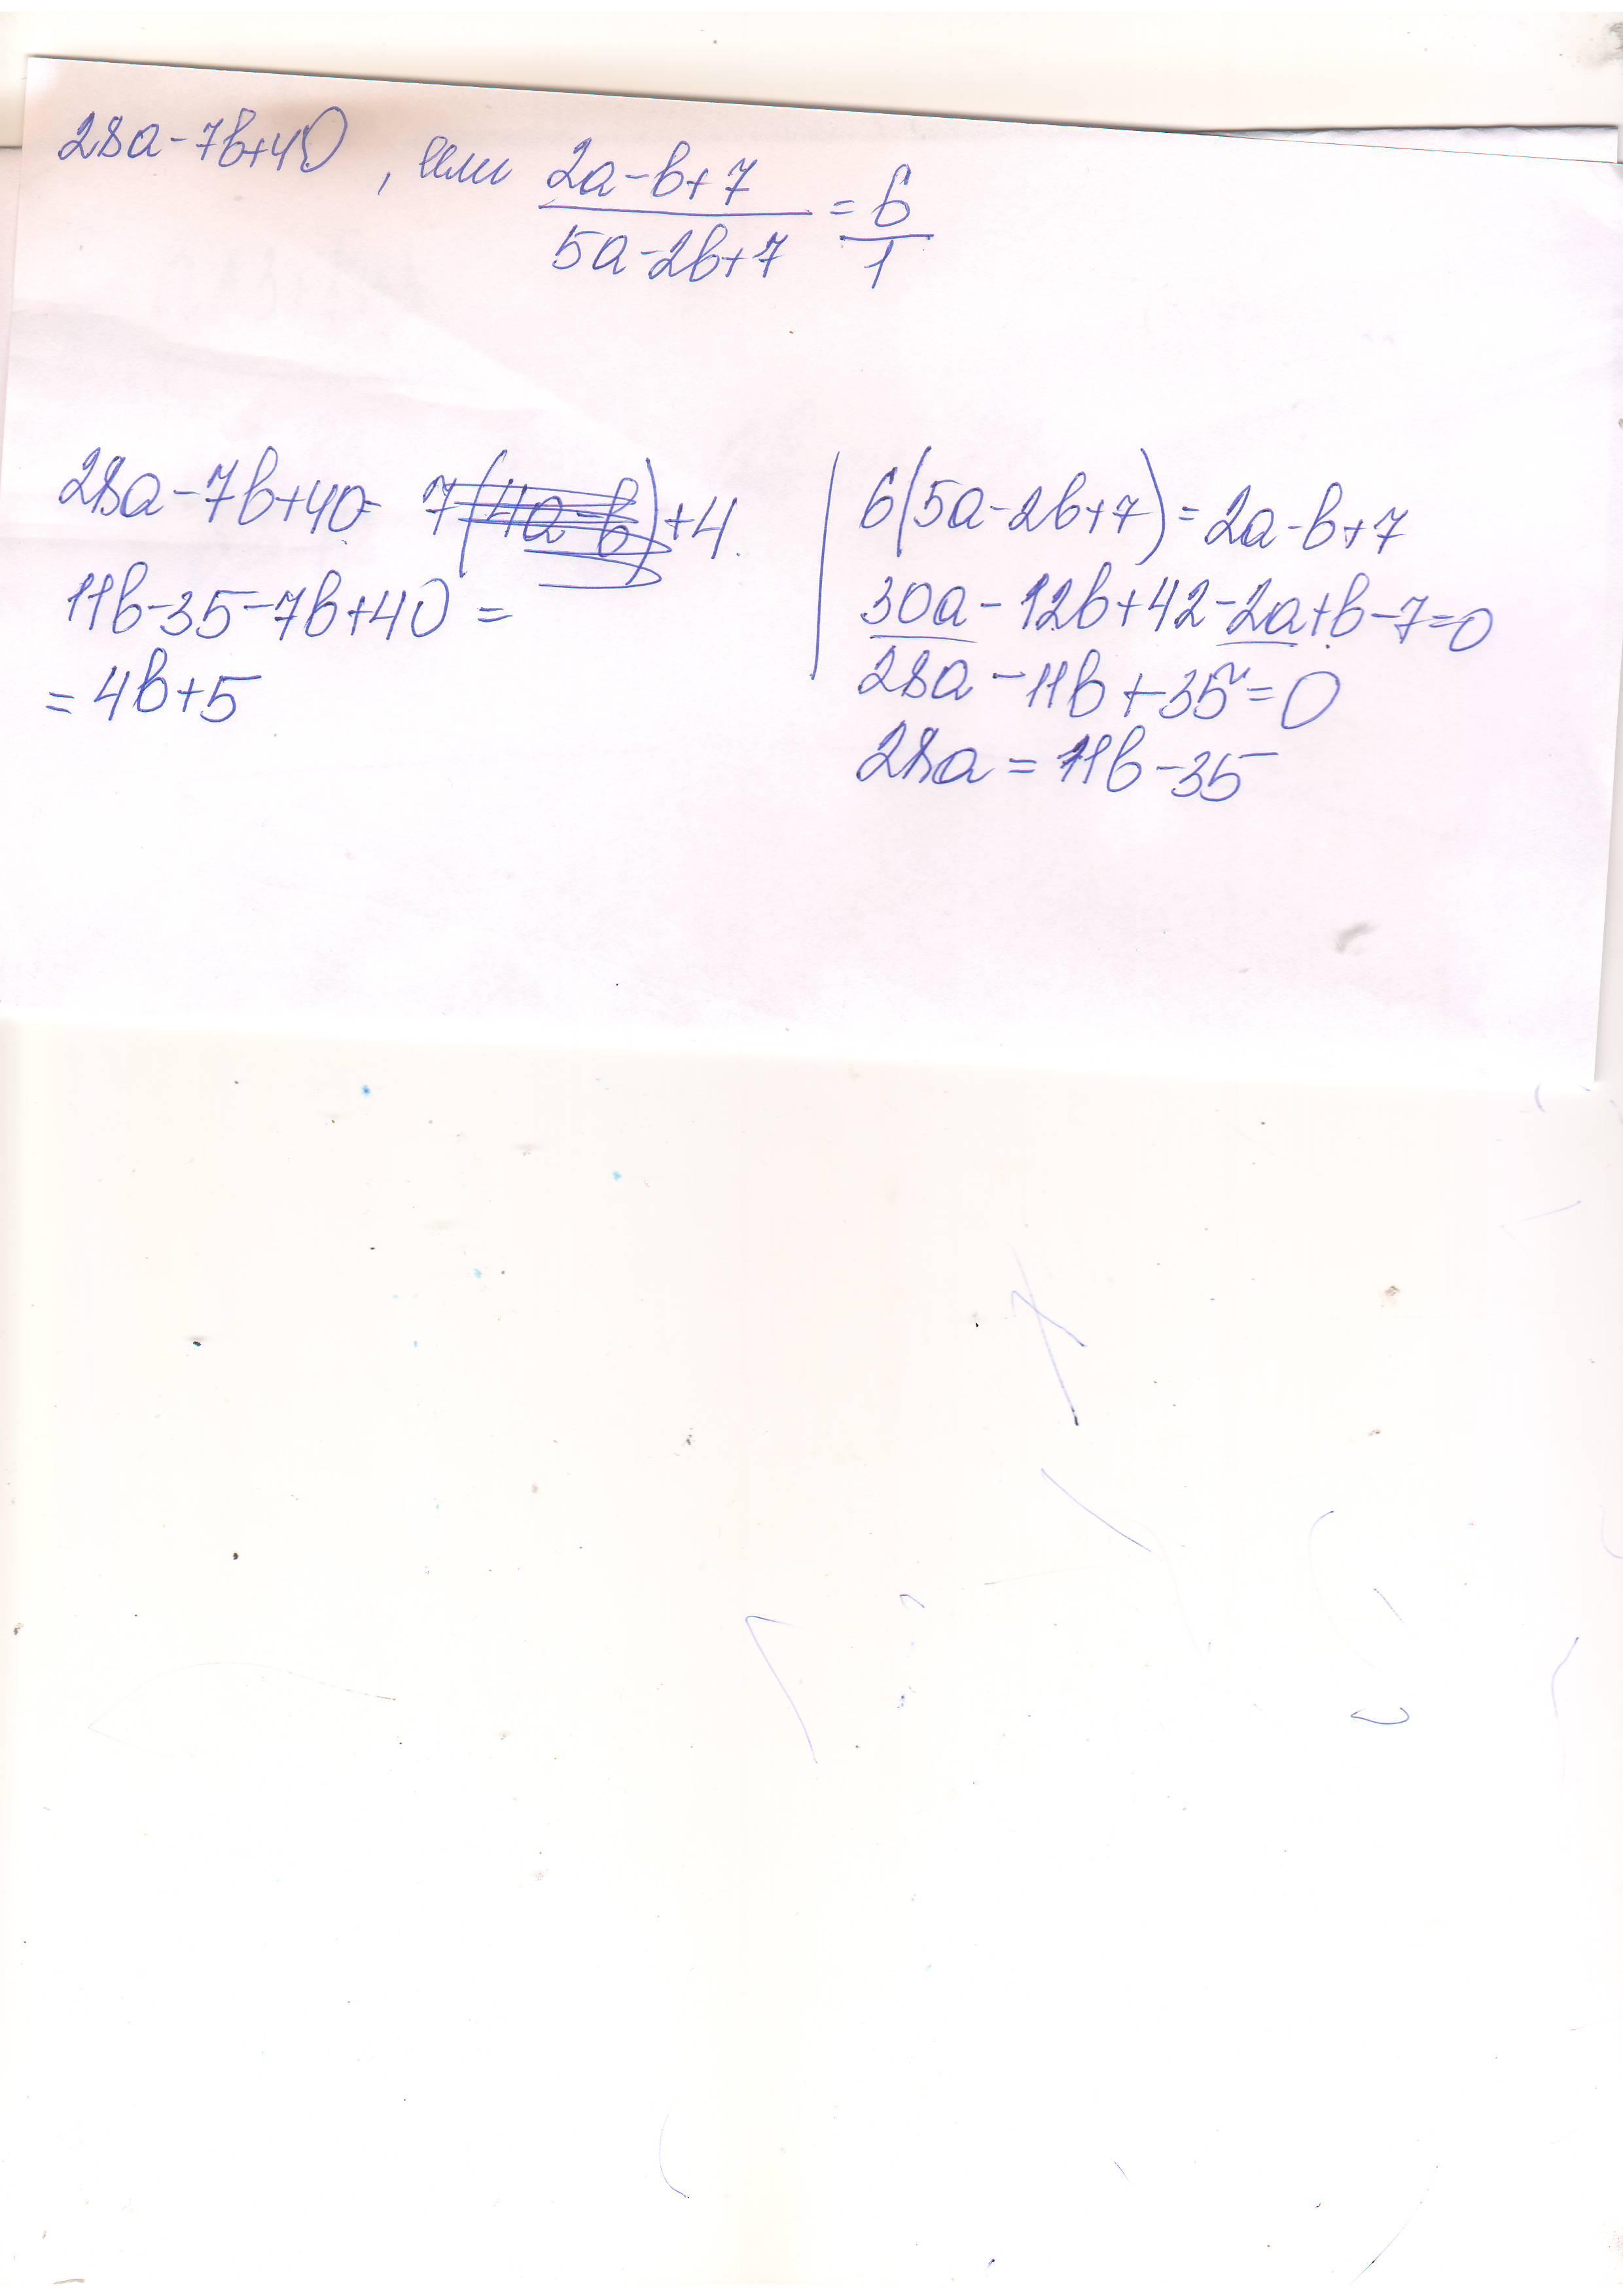 28a-7b+40, или (2a-b+7)/(5a-2b+7) = 6/1
28a-7b+40= 7(4a-b)+4.
11b-35-7b+40 =
= 4b+5
6(5a-2b+7)=2a-b+7
30a-12b+42-2a+b-7=0
28a-11b+35=0
28a = 11b-35